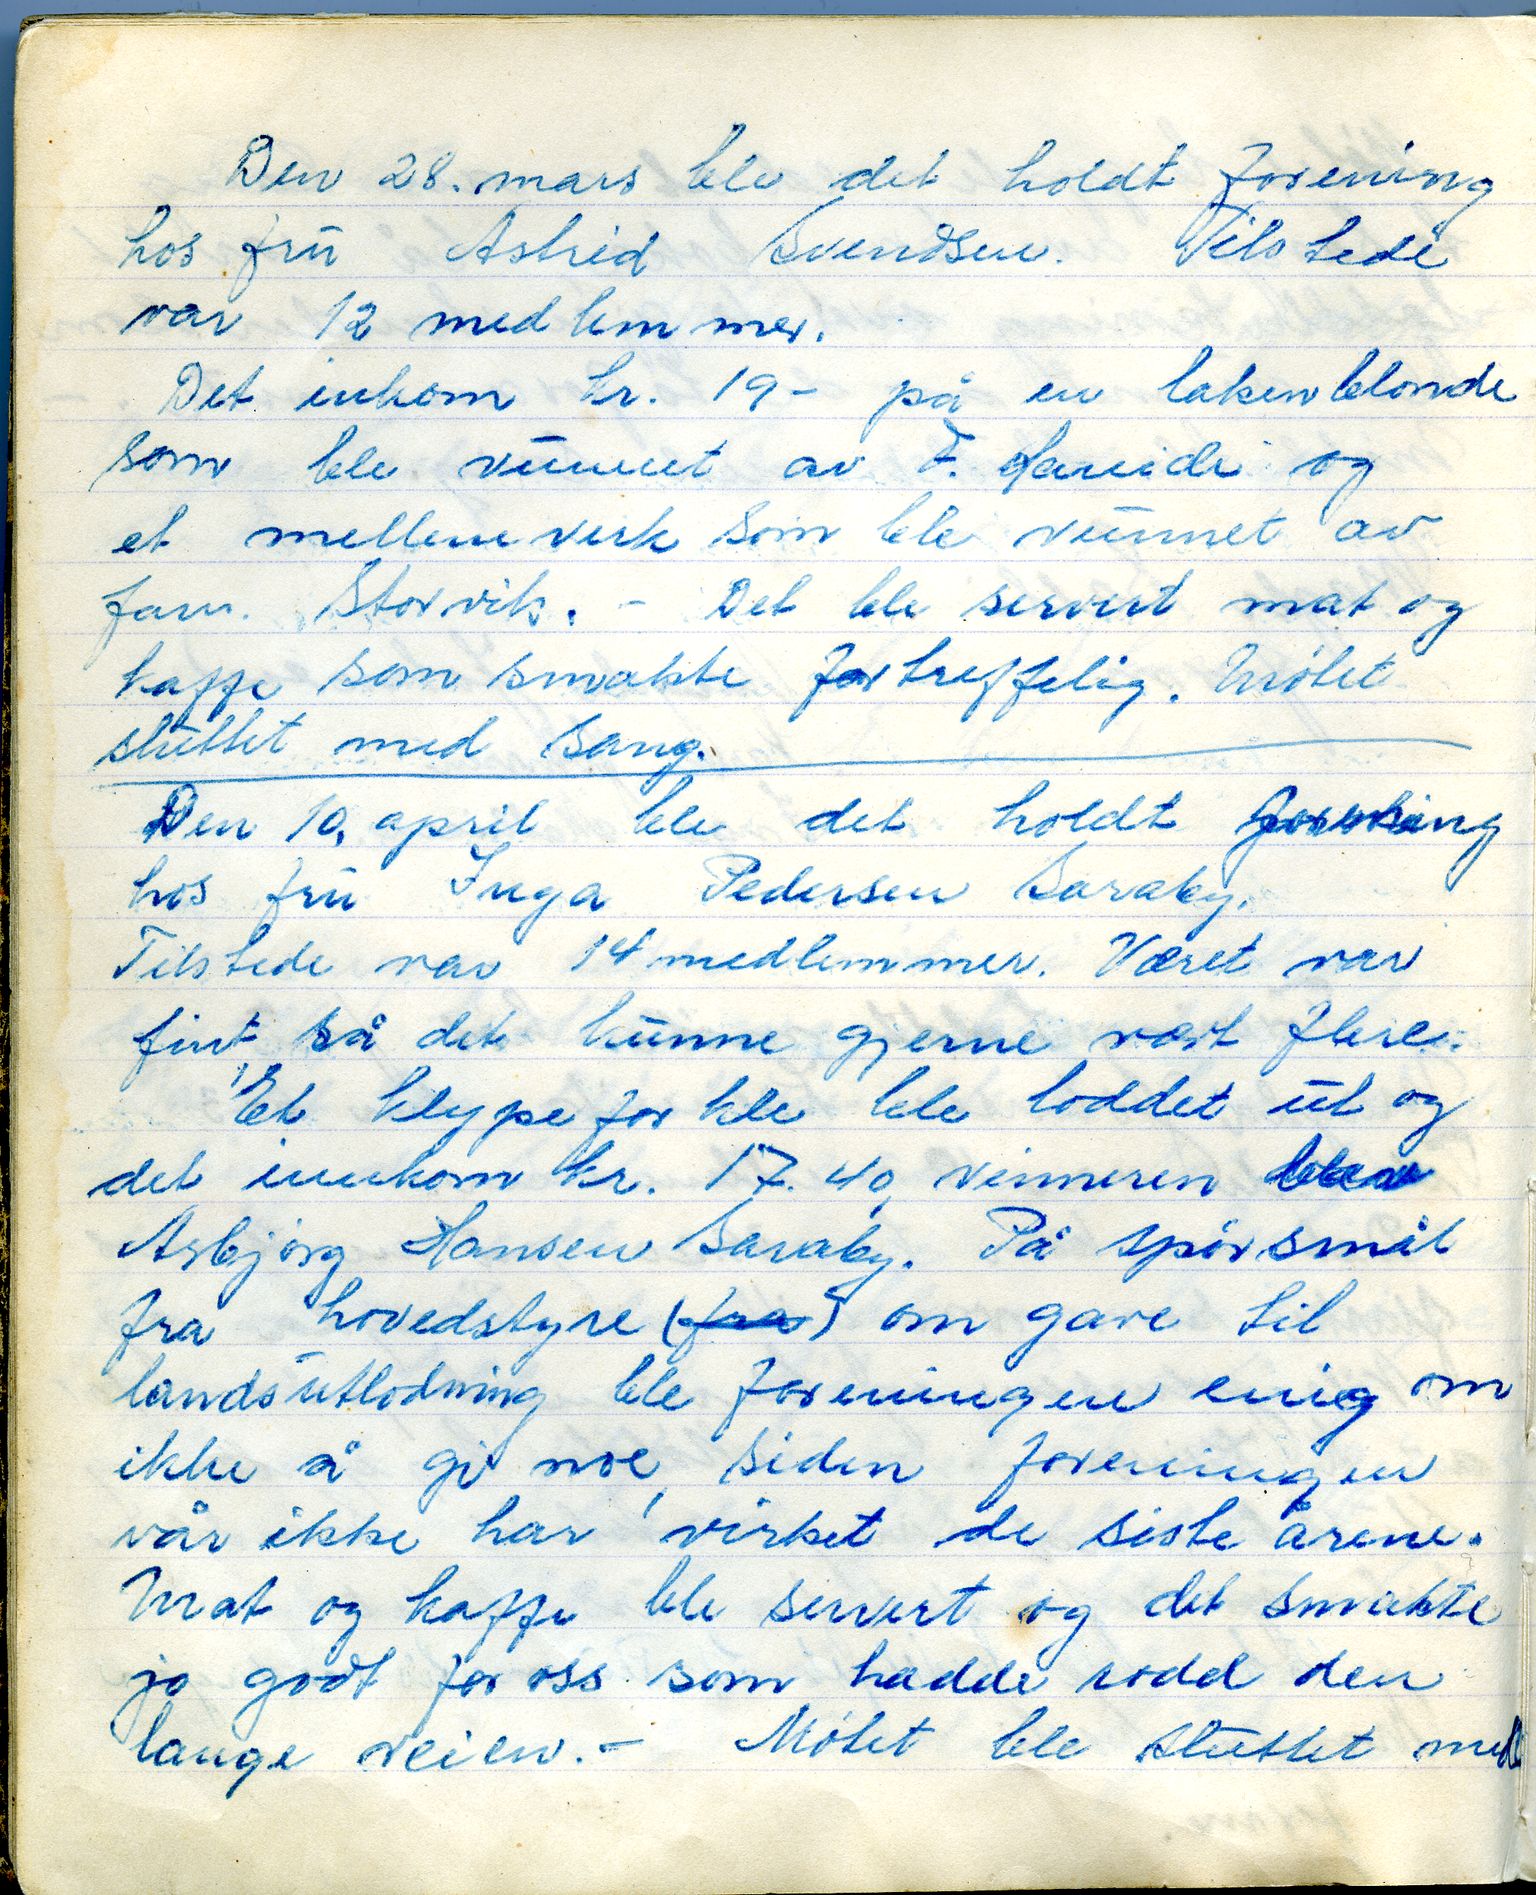 Den 28. mars ble det holdt forening
hos frū Astrid Svendsen. Tilstede
var 12 medlemmer.
Det inkom kr. 19- på en lakenblonde
som ble vūnnet av F. Hareide og
et mellemverk som ble vūnnet av
fam. Storvik. - Det ble servert mat og
kaffe som smakte fortreffelig. Møtet
slūttet med sang.
Den 10. april ble det holdt forening
hos frū Inga Pedersen Saraby.
Tilstede var 14 medlemmer. Været var
fint, så det kūnne gjerne vært flere.
Et klypeforkle ble loddet ūt og
det innkom kr. 17.40, vinneren ble
Asbjørg Hansen Saraby. På spørsmål
fra hovedstyre (fra) om gave til
landsūtlodning ble foreningen enig om
ikke å gi noe, siden foreningen
vår ikke har virket de siste årene.
Mat og kaffe ble servert og det smakte
jo godt for oss som hadde rodd den
lange veien. - Møtet ble slūttet med